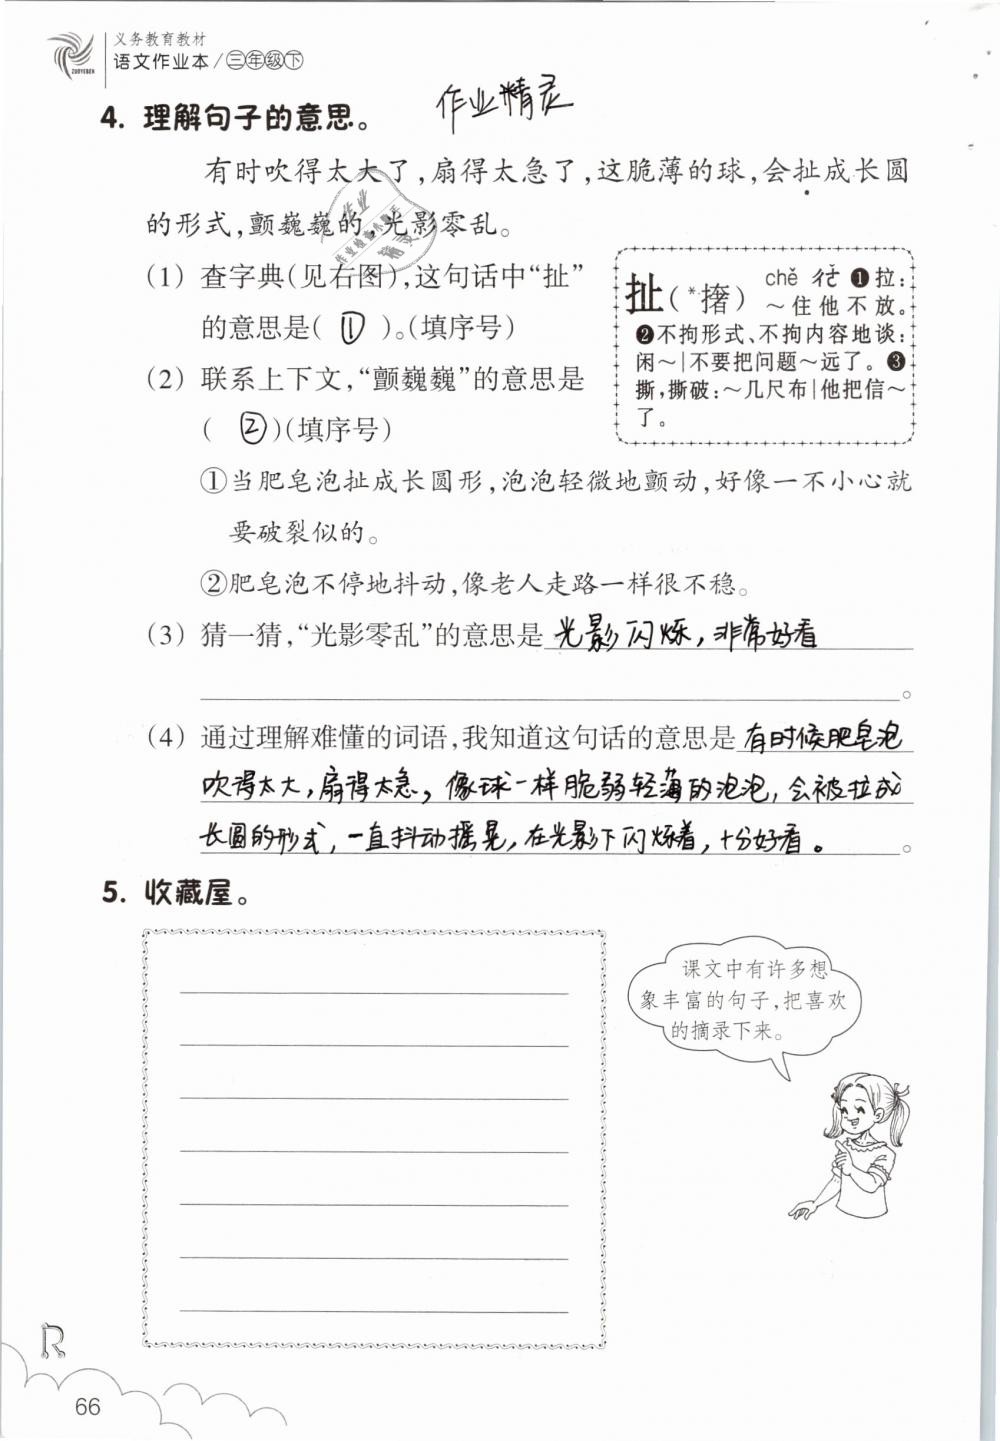 义务教育教材
语文作业本/三年级下
ZUOYEBEN
作业精灵
4. 理解句子的意思。
有时吹得太大了,扇得太急了,这脆薄的球,会扯成长圆
的形式,颤巍巍的,光影零乱。
(1) 查字典(见右图),这句话中“扯”
的意思是( ① )。(填序号)
(2) 联系上下文,“颤巍巍”的意思是
( ② )(填序号)
扯(*撦) chě ❶拉:
~住他不放。
❷不拘形式、不拘内容地谈:
闲~|不要把问题~远了。❸
撕,撕破:~几尺布|他把信~
了。
①当肥皂泡扯成长圆形,泡泡轻微地颤动,好像一不小心就
要破裂似的。
②肥皂泡不停地抖动,像老人走路一样很不稳。
(3) 猜一猜,“光影零乱”的意思是 光影闪烁,非常好看
。
(4) 通过理解难懂的词语,我知道这句话的意思是 有时候肥皂泡
吹得太大,扇得太急,像球一样脆弱轻薄的泡泡,会被拉成
长圆的形式,一直抖动摇晃,在光影下闪烁着,十分好看。。
5. 收藏屋。
课文中有许多想
象丰富的句子,把喜欢
的摘录下来。
R
66